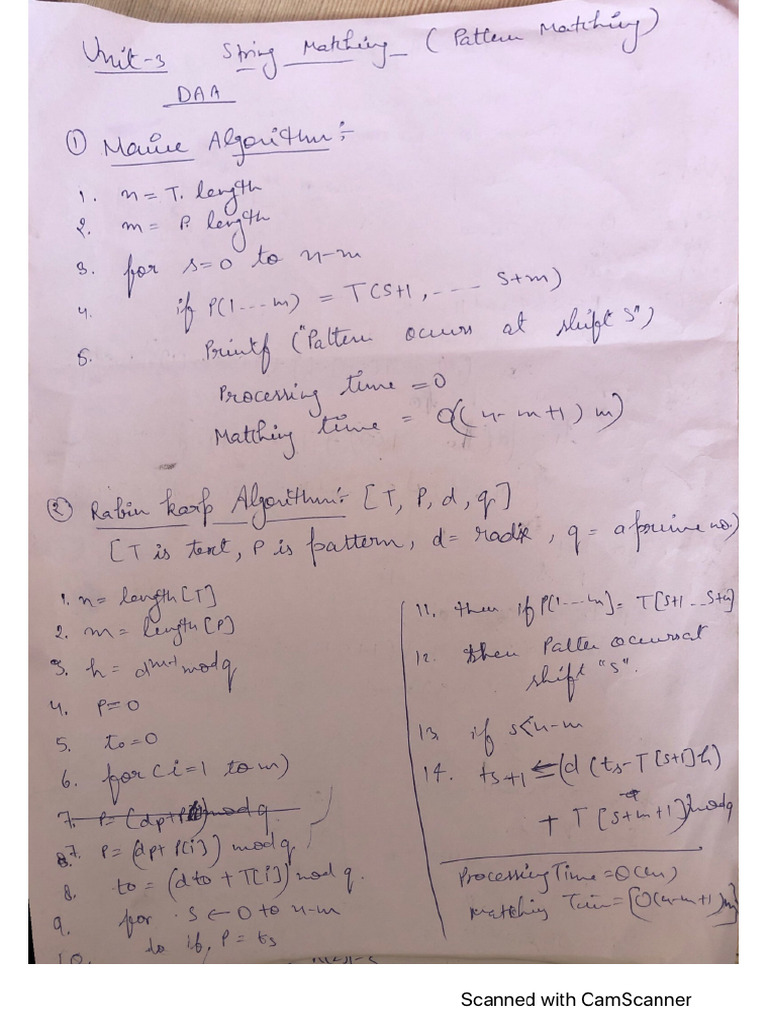 Unit-3 String Matching (Pattern Matching)
DAA
① Naive Algorithm:-
1. n = T. length
2. m = P. length
3. for s=0 to n-m
4. if P(1---m) = T(S+1, ---- S+m)
5. Printf ("Pattern occurs at shift S")
Processing time = 0
Matching time = O((n-m+1) m)
② Rabin Karp Algorithm:- [T, P, d, q]
[T is text, P is pattern, d= radix, q = a prime no.)
1. n= length[T]
2. m = length[P]
3. h = d^{m-1} mod q
4. P=0
5. to=0
6. for(i=1 to m)
7. P= (dp+P[i]) mod q
7. P= (dp+ P[i]) mod q
8. to = (dto + T[i]) mod q.
9. for S ← 0 to n-m
10. do if, P = ts
11. then if P(1---m]= T[S+1--S+m]
12. then Patter occurs at
shift "S".
13. if s<n-m
14. ts+1 ⇐(d (ts-T[s+1]h)
+ T[s+m+1]) mod q
Processing Time = O(m)
Matching Time = [O(n-m+1)m]
Scanned with CamScanner